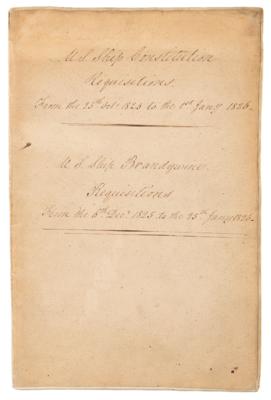 U S Ship Constitution
Requisitions.
From the 25th Oct 1825 to the 1st Jany 1826.
U S Ship Brandywine
Requisitions
From the 6th Decr 1825 to the 25th Jany 1826.